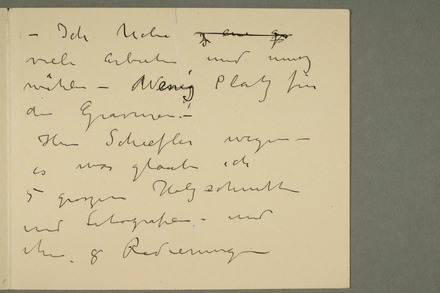 – Ich habe
viele Arbeiten und muss
wählen – Wenig Platz für
die Gravuren! –
Herr Schiefler wegen –
es war glaube ich
5 grossen Holzschnitte
und Litografien – und
8 Radierungen